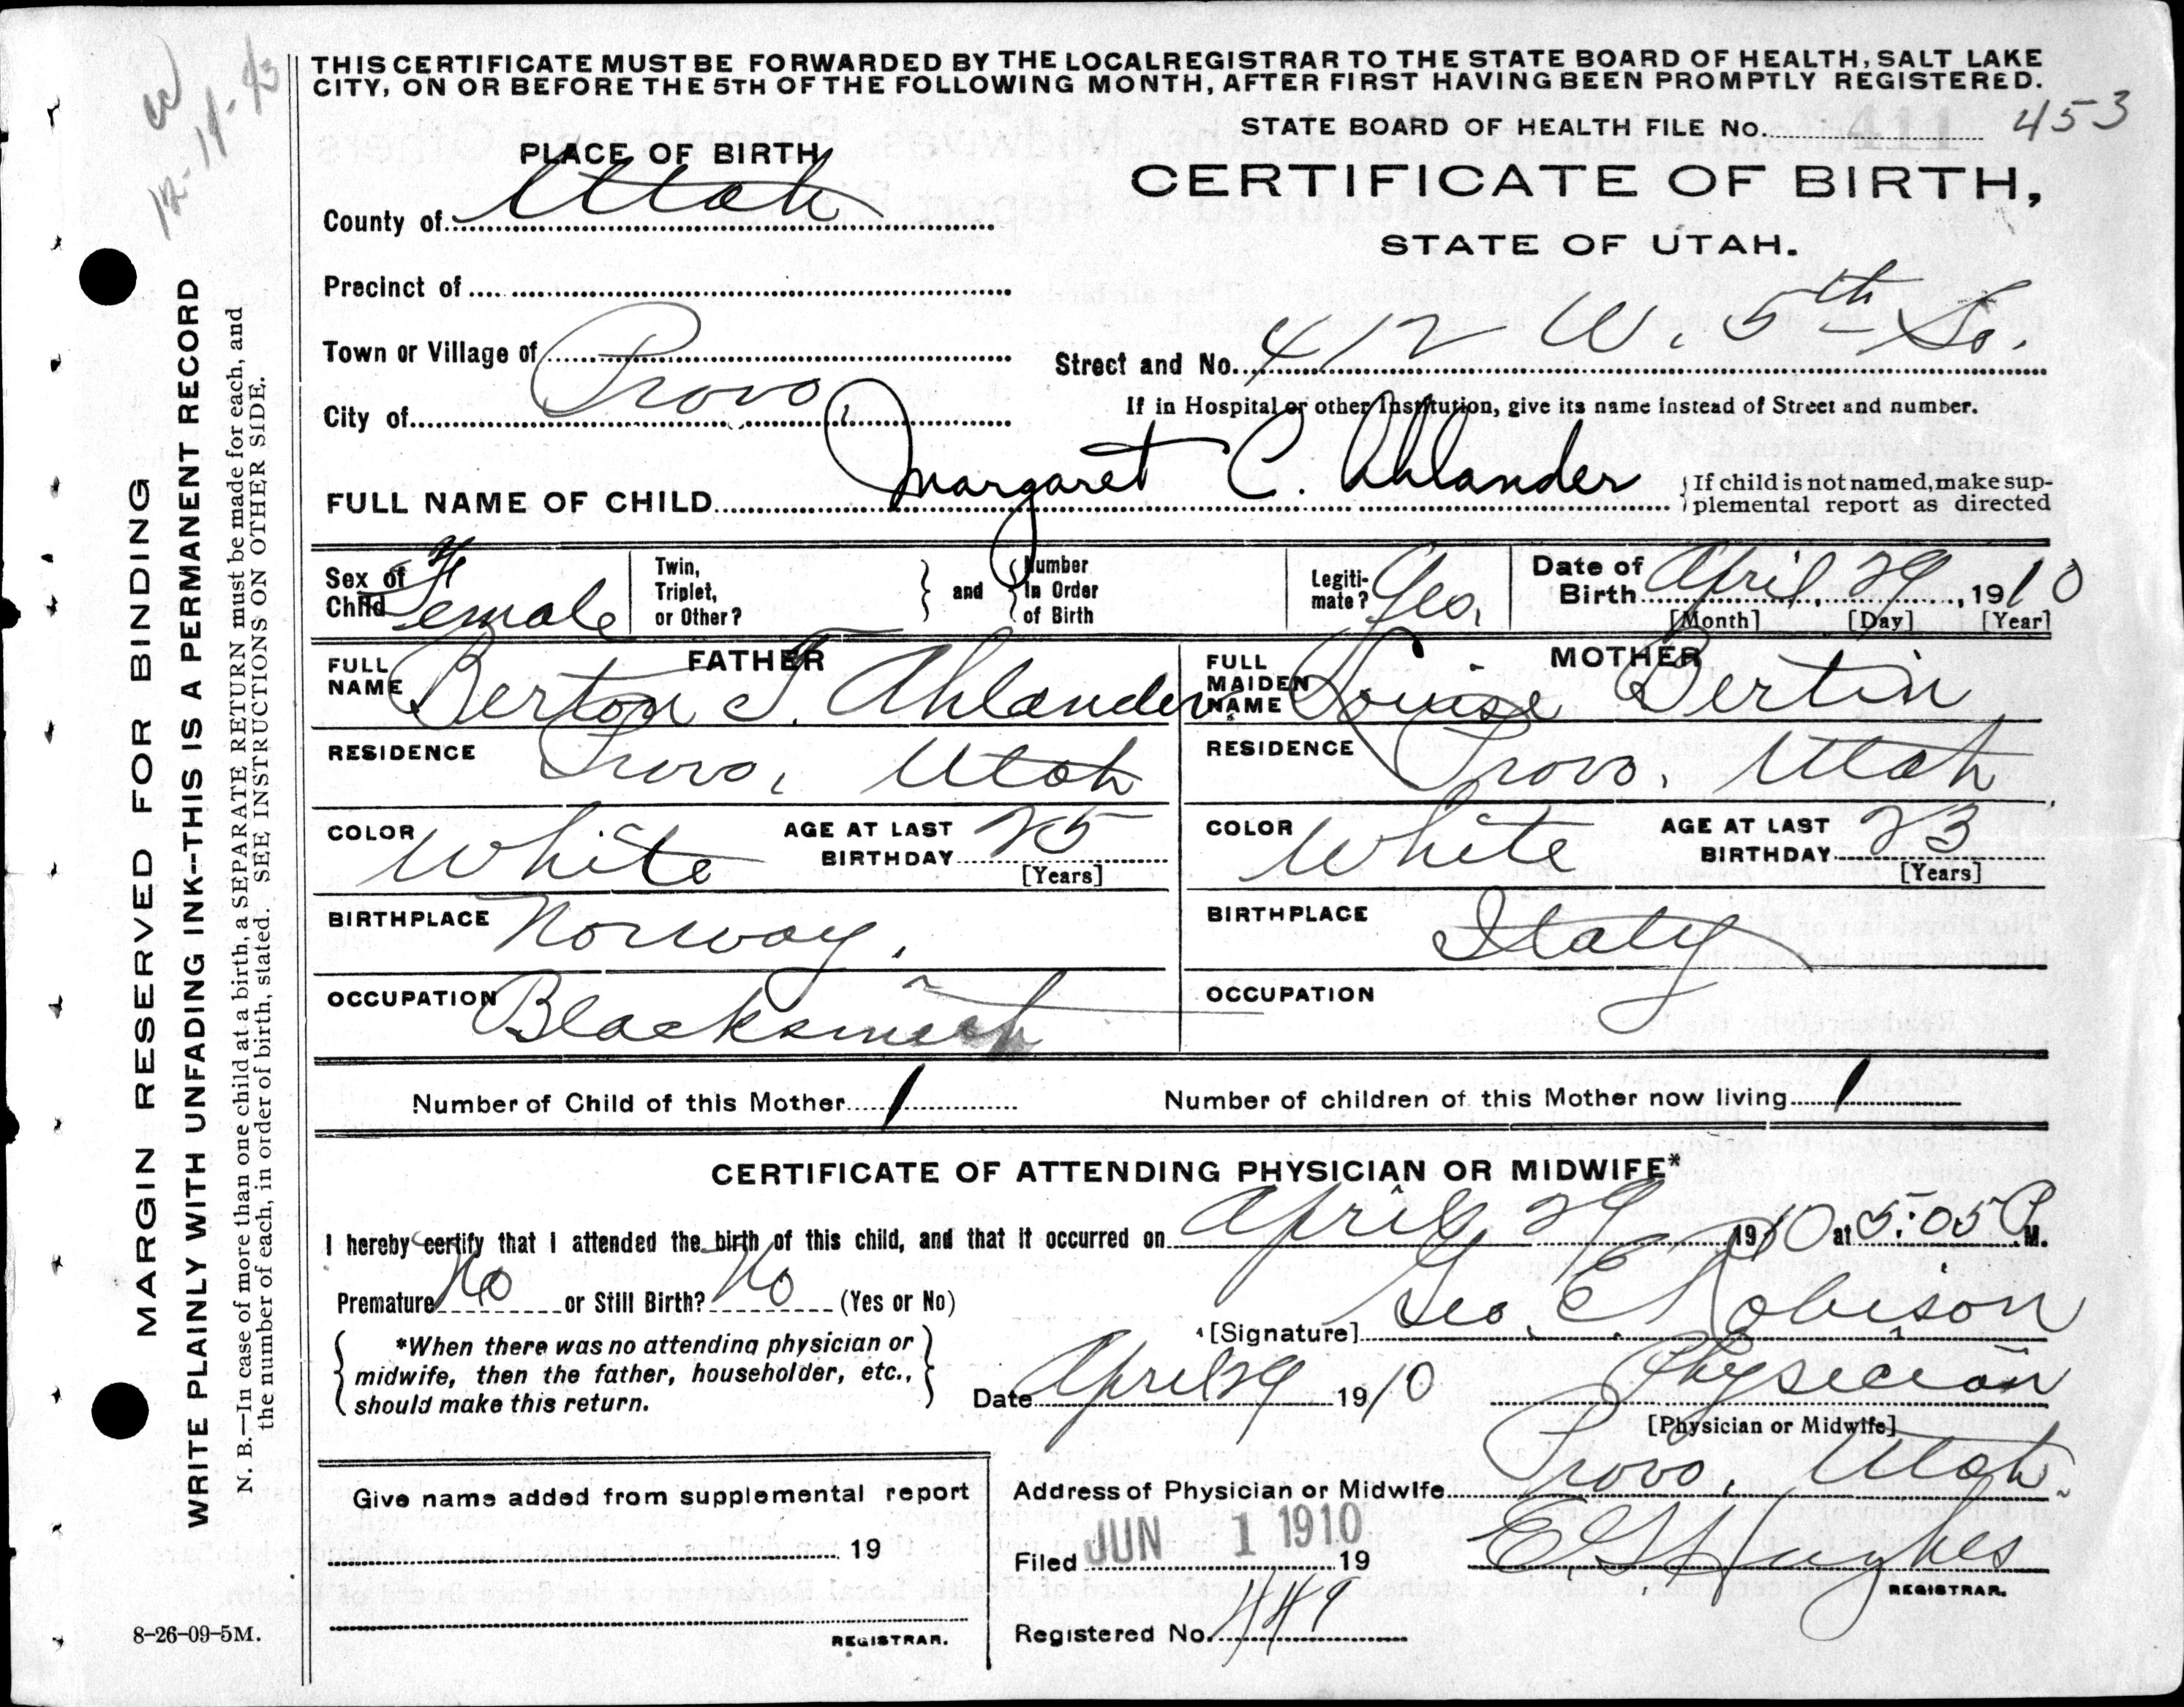 W
12-14-43
THIS CERTIFICATE MUST BE FORWARDED BY THE LOCAL REGISTRAR TO THE STATE BOARD OF HEALTH, SALT LAKE
CITY, ON OR BEFORE THE 5TH OF THE FOLLOWING MONTH, AFTER FIRST HAVING BEEN PROMPTLY REGISTERED.
STATE BOARD OF HEALTH FILE No. 411 453
PLACE OF BIRTH
CERTIFICATE OF BIRTH,
STATE OF UTAH.
County of Utah
Precinct of
Town or Village of
Street and No. 412 W. 5th So.
City of Provo,
If in Hospital or other Institution, give its name instead of Street and number.
FULL NAME OF CHILD Margaret C. Ahlander
If child is not named, make sup-
plemental report as directed
Sex of Child Female
Twin, Triplet, or Other?
and
Number in Order of Birth
Legiti-mate?
Date of Birth April 29, 1910
[Month] [Day] [Year]
FATHER
MOTHER
FULL NAME Berton T. Ahlander
FULL MAIDEN NAME Louise Bertin
RESIDENCE Provo, Utah
RESIDENCE Provo, Utah
COLOR White AGE AT LAST BIRTHDAY 25 [Years]
COLOR White AGE AT LAST BIRTHDAY 23 [Years]
BIRTHPLACE Norway.
BIRTHPLACE Italy
OCCUPATION Blacksmith
OCCUPATION
Number of Child of this Mother 1
Number of children of this Mother now living 1
CERTIFICATE OF ATTENDING PHYSICIAN OR MIDWIFE*
I hereby certify that I attended the birth of this child, and that it occurred on April 29 1910 at 5:05 P.M.
Premature No or Still Birth? No (Yes or No)
[Signature] Geo. E. Robison
*When there was no attending physician or
midwife, then the father, householder, etc.,
should make this return.
Date April 29 1910
Physician
[Physician or Midwife]
Give name added from supplemental report
19
REGISTRAR.
Address of Physician or Midwife Provo, Utah.
Filed JUN 1 1910 19
E. G. Hughes
REGISTRAR.
Registered No. 449
MARGIN RESERVED FOR BINDING
WRITE PLAINLY WITH UNFADING INK--THIS IS A PERMANENT RECORD
N. B.—In case of more than one child at a birth, a SEPARATE RETURN must be made for each, and
the number of each, in order of birth, stated. SEE INSTRUCTIONS ON OTHER SIDE.
8-26-09-5M.